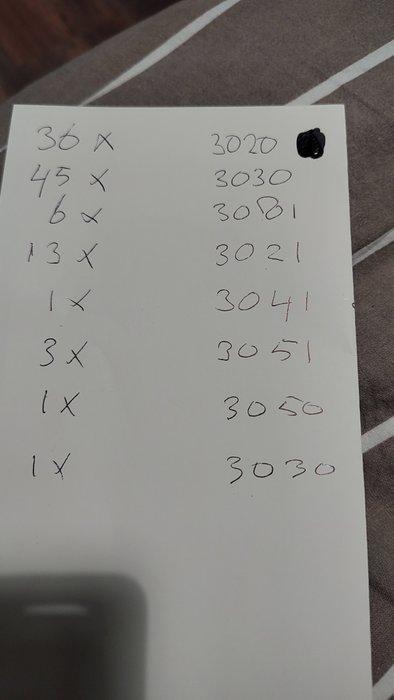 36 x 3020
45 x 3030
6 x 3081
13 x 3021
1 x 3041
3 x 3051
1 x 3050
1 x 3030